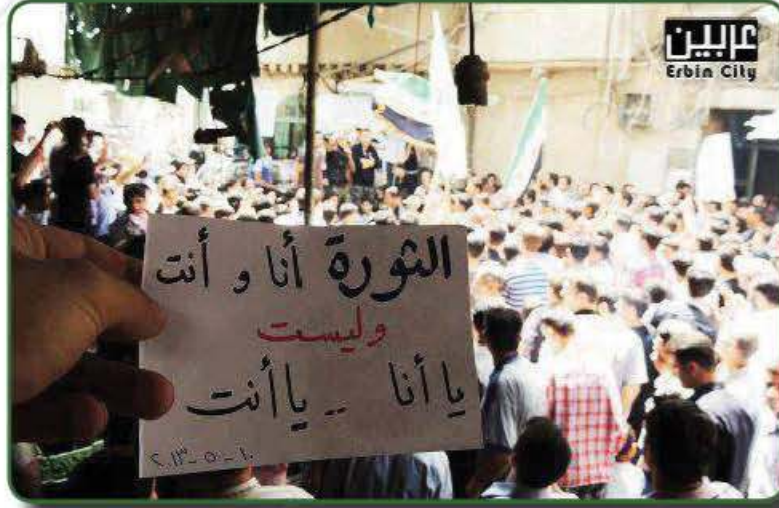 عربين
Erbin City
الثورة أنا و أنت
وليست
يا أنا .. يا أنت
٢٠١٣-٥-١٠